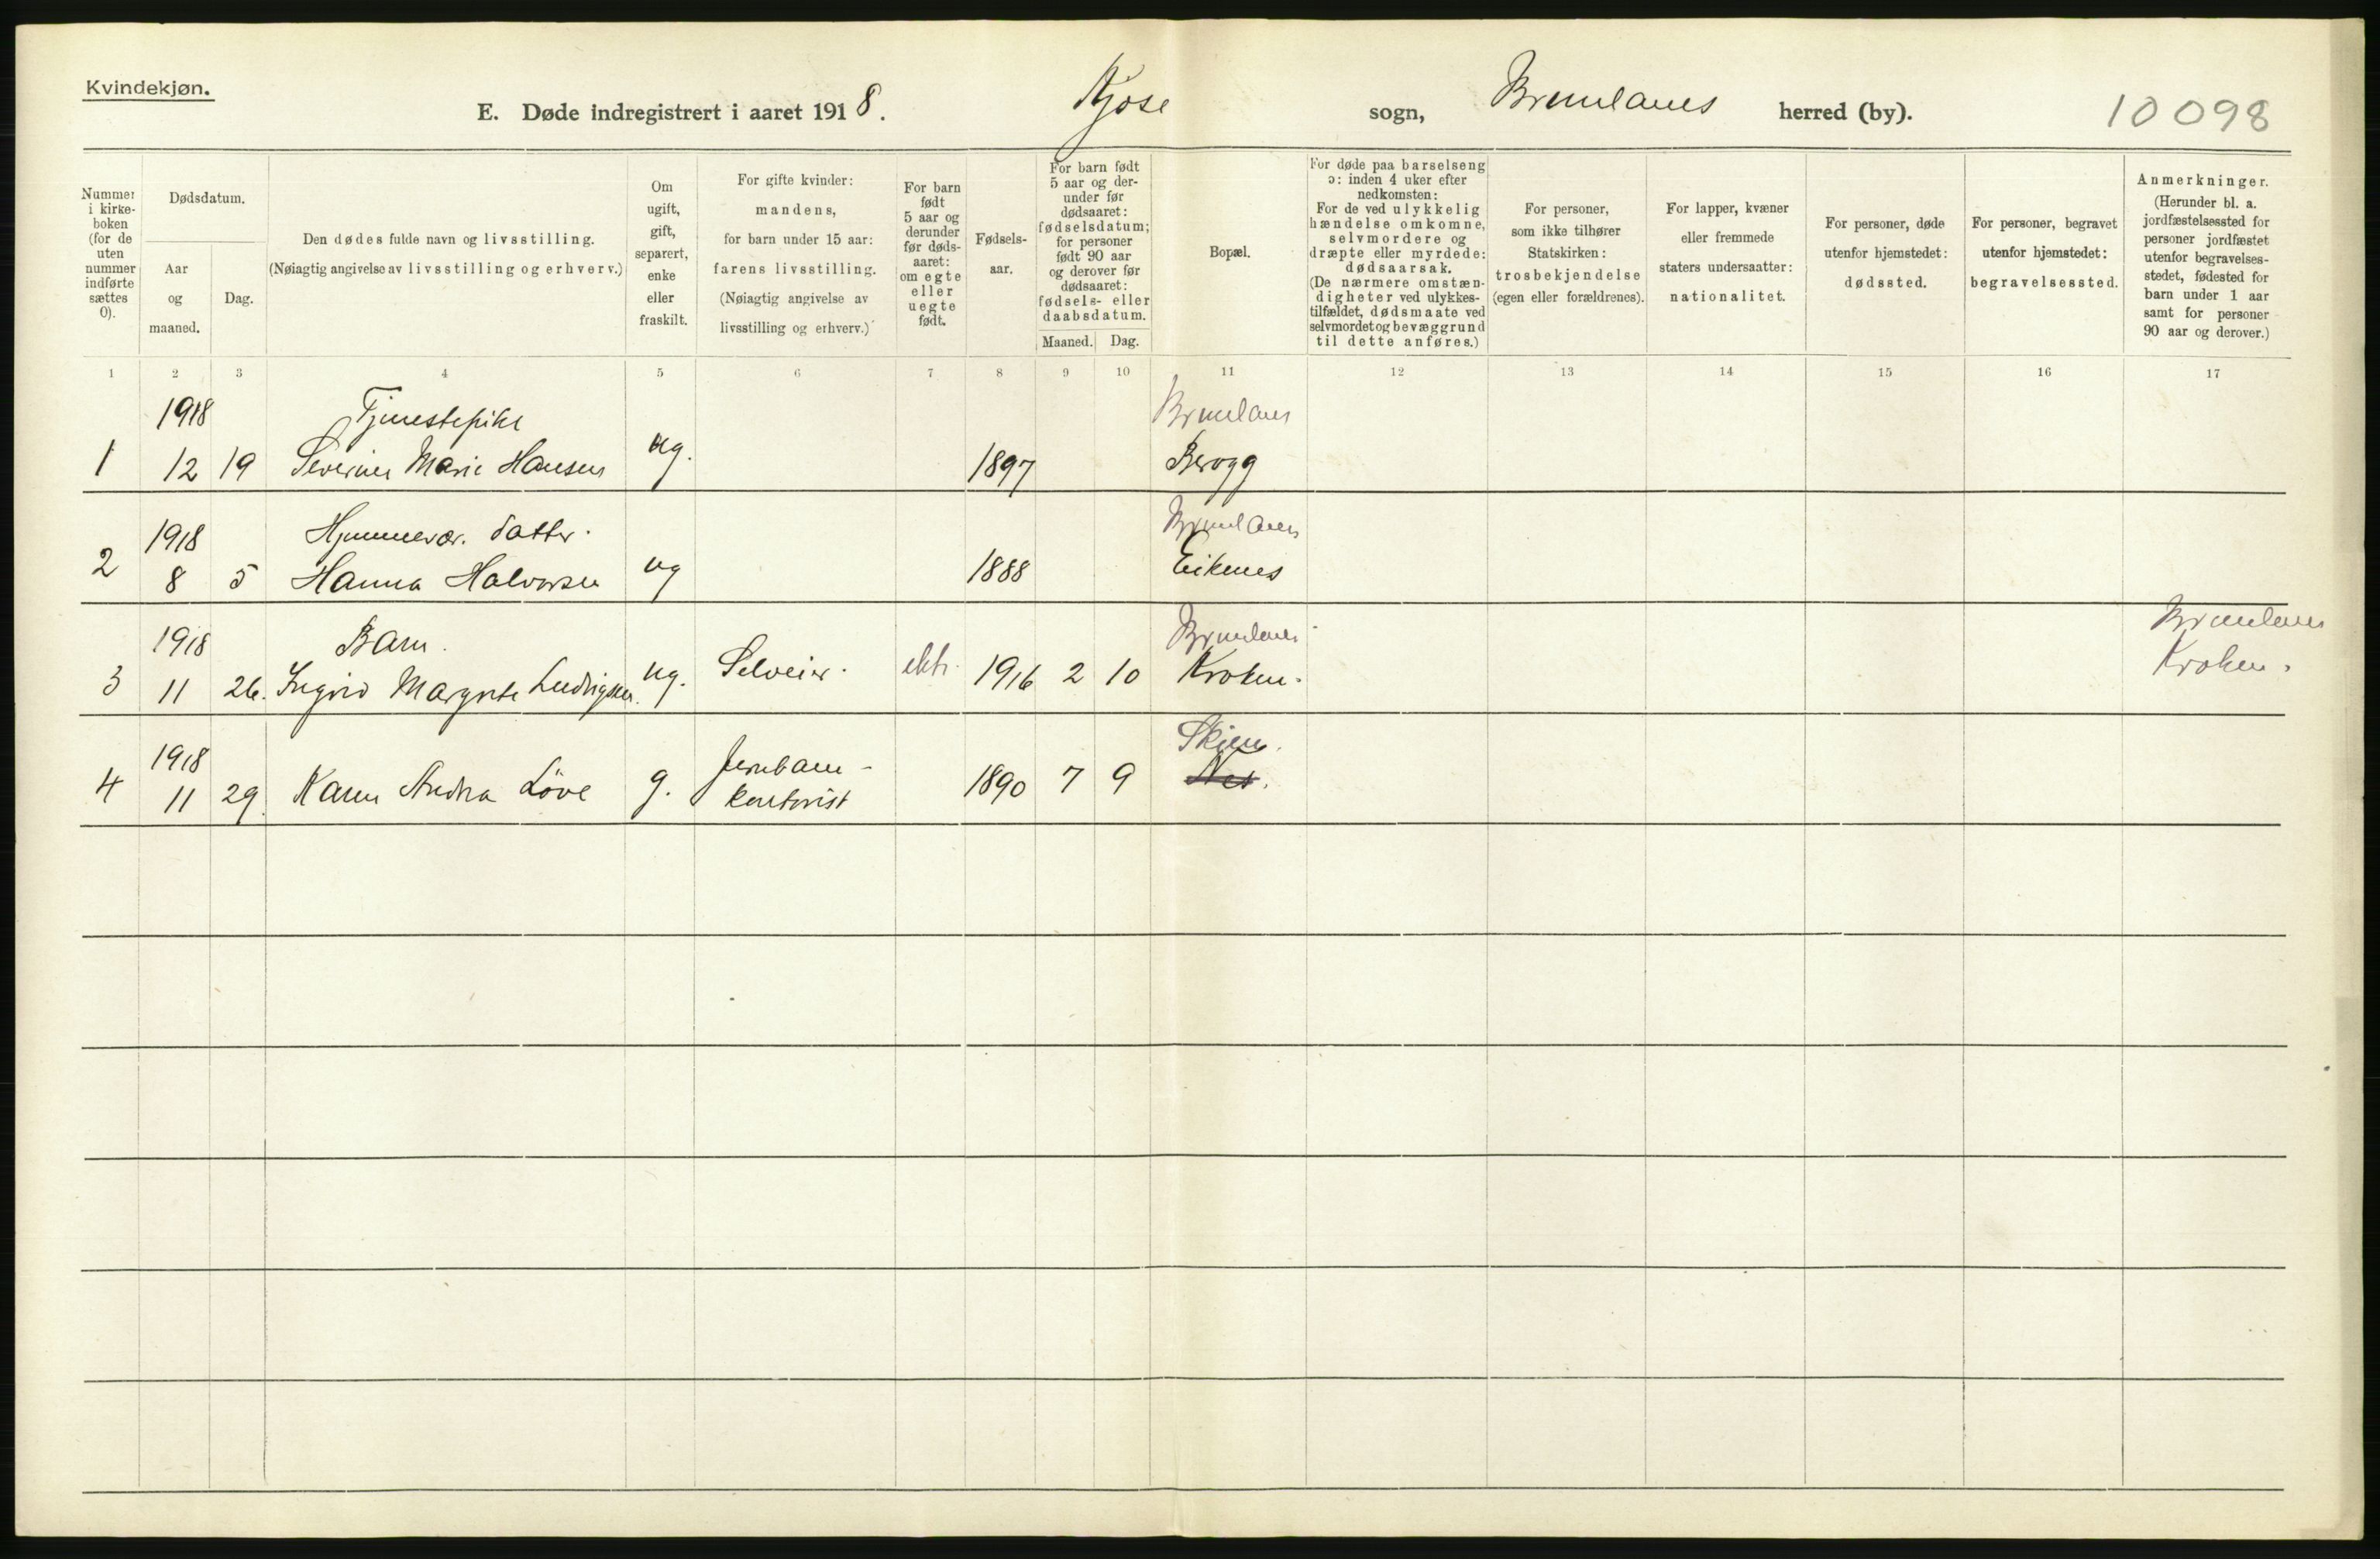 Kvindekjøn.
E. Døde indregistrert i aaret 1918. Kjose sogn, Brunlanes herred (by). 10098
Nummer i kirkeboken (for de uten nummer indførte sættes 0).
Dødsdatum.
Aar og maaned.
Dag.
Den dødes fulde navn og livsstilling.
(Nøiagtig angivelse av livsstilling og erhverv.)
Om ugift, gift, separert, enke eller fraskilt.
For gifte kvinder:
mandens,
for barn under 15 aar:
farens livsstilling.
(Nøiagtig angivelse av
livsstilling og erhverv.)
For barn født 5 aar og derunder før dødsaaret: om egte eller uegte født.
Fødselsaar.
For barn født 5 aar og derunder før dødsaaret: fødselsdatum; for personer født 90 aar og derover før dødsaaret: fødsels- eller daabsdatum.
Maaned. Dag.
Bopæl.
For døde paa barselseng
ɔ: inden 4 uker efter
nedkomsten:
For de ved ulykkelig
hændelse omkomne,
selvmordere og
dræpte eller myrdede:
dødsaarsak.
(De nærmere omstæn-
digheter ved ulykkes-
tilfældet, dødsmaate ved
selvmordet og bevæggrund
til dette anføres.)
For personer,
som ikke tilhører
Statskirken:
trosbekjendelse
(egen eller forældrenes).
For lapper, kvæner
eller fremmede
staters undersaatter:
nationalitet.
For personer, døde
utenfor hjemstedet:
dødssted.
For personer, begravet
utenfor hjemstedet:
begravelsessted.
Anmerkninger.
(Herunder bl. a.
jordfæstelsessted for
personer jordfæstet
utenfor begravelses-
stedet, fødested for
barn under 1 aar
samt for personer
90 aar og derover.)
1 2 3 4 5 6 7 8 9 10 11 12 13 14 15 16 17
1918 Tjenestepike Brunlanes
1 12 19 Severine Marie Hansen ug. 1897 Berogg
1918 Hjemmevær. datter. Brunlanes
2 8 5 Hanna Halvorsen ug 1888 Eikenes
1918 Barn. Brunlanes Brunlanes
3 11 26. Ingrid Margrete Ludvigsen. ug. Selveier. ekte 1916 2 10 Kroken. Kroken.
1918 Jernbane- Skien.
4 11 29. Karen Andrea Löve g. kontorist 1890 7 9 Nes.